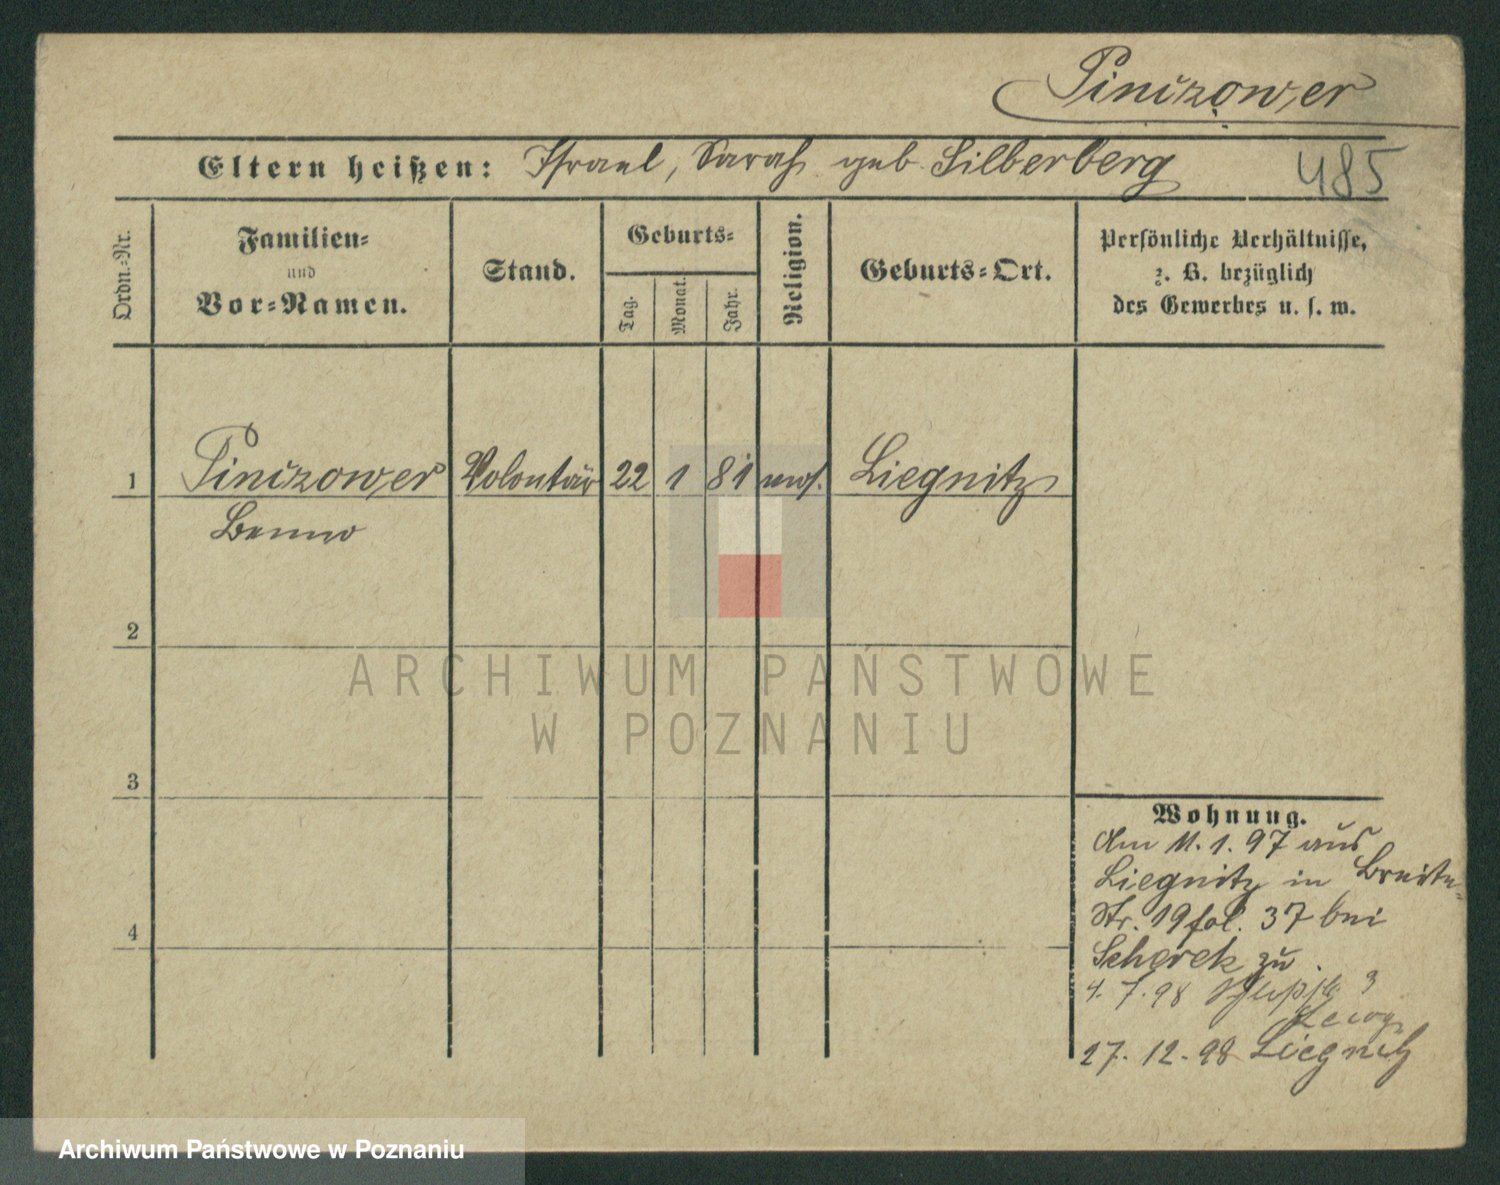 Pinczower
Eltern heißen: Israel, Sarah geb. Silberberg 485
Ordn.-Nr.
Familien-
und
Vor-Namen.
Stand.
Geburts-
Tag.
Monat.
Jahr.
Religion.
Geburts-Ort.
Persönliche Verhältnisse,
z. B. bezüglich
des Gewerbes u. s. w.
1 Pinczower Volontär 22 1 81 mos. Liegnitz
Benno
2
3
4
Wohnung.
Am 11.1.97 aus
Liegnitz in Breite-
Str. 19 fol. 37 bei
Scherek zu
4.7.98 3
27.12.98 Liegnitz
ARCHIWUM PAŃSTWOWE
W POZNANIU
Archiwum Państwowe w Poznaniu